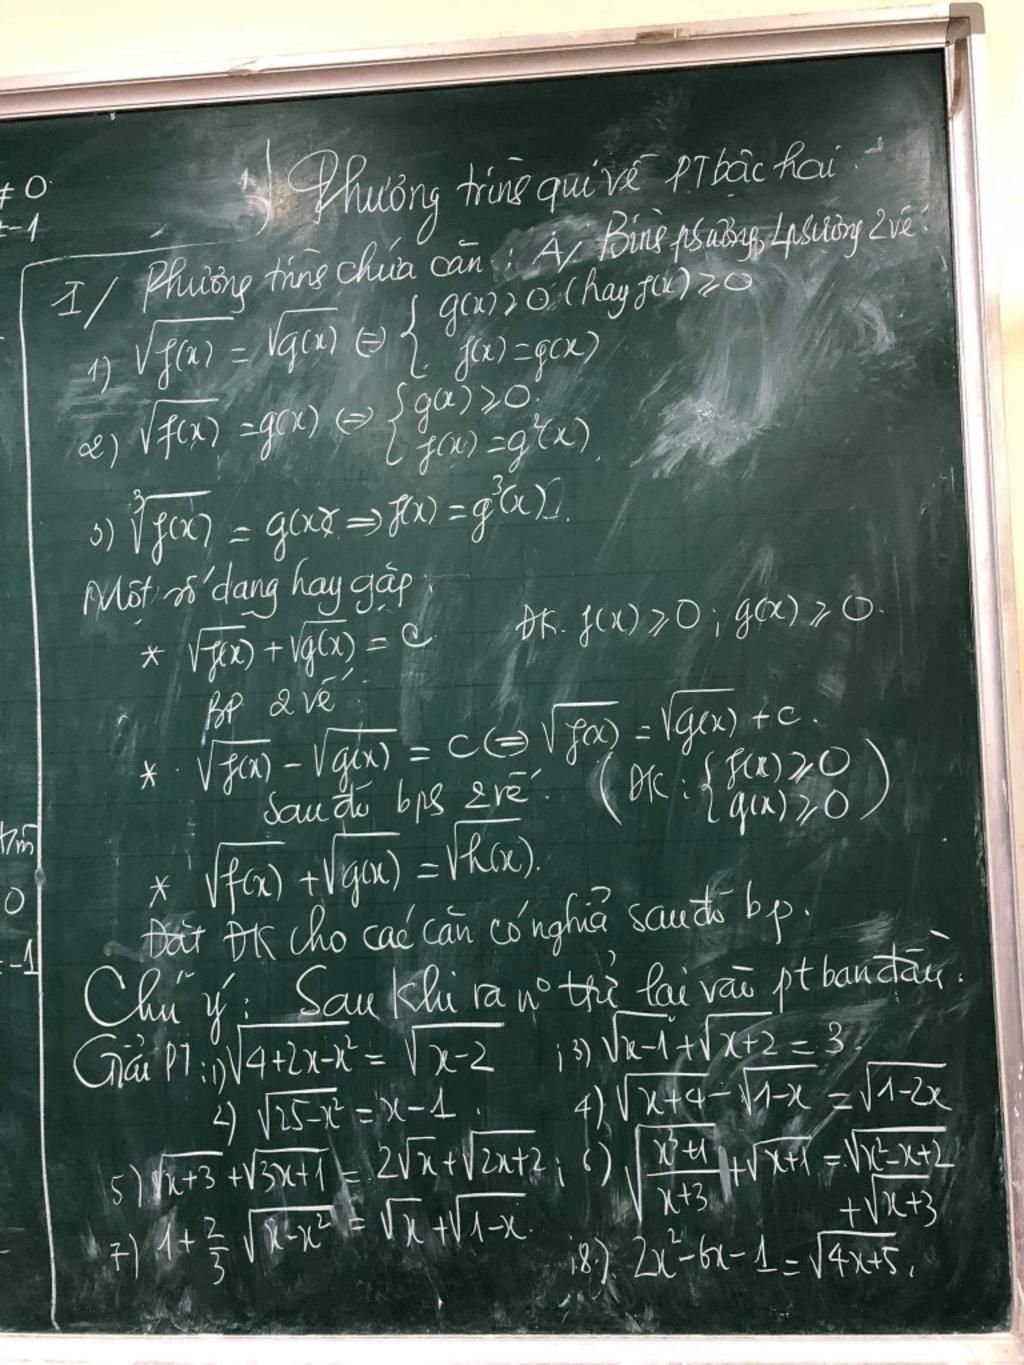 ≠ 0
-1
1) Phương trình qui về PT bậc hai.
I/ Phương trình chứa căn: A/ Bình phương, Lphương 2 vế.
1) √f(x) = √g(x) ⇔ { g(x) ≥ 0 (hay f(x) ≥ 0
f(x) = g(x)
2) √f(x) = g(x) ⇔ { g(x) ≥ 0.
f(x) = g²(x).
3) ∛f(x) = g(x) ⇒ f(x) = g³(x).
Một số dạng hay gặp:
* √f(x) + √g(x) = C ĐK. f(x) ≥ 0; g(x) ≥ 0.
BP 2 vế
* √f(x) - √g(x) = C ⇔ √f(x) = √g(x) + c.
Sau đó bp 2 vế. (ĐK: { f(x) ≥ 0
g(x) ≥ 0)
t/m
* √f(x) + √g(x) = √h(x).
0
Đặt ĐK cho các căn có nghĩa sau đó bp.
-1
Chú ý: Sau khi ra nº thử lại vào pt ban đầu.
Giải PT: 1) √(4+2x-x²) = √(x-2) ; 3) √(x-1) + √(x+2) = 3.
2) √(25-x²) = x-1. 4) √(x+4) - √(1-x) = √(1-2x)
5) √(x+3) + √(3x+1) = 2√x + √(2x+2); 6) √((x³+1)/(x+3)) + √(x+1) = √(x²-x+2)
+ √(x+3)
7) 1 + 2/3 √(x-x²) = √x + √(1-x).
; 8) 2x²-6x-1 = √(4x+5).